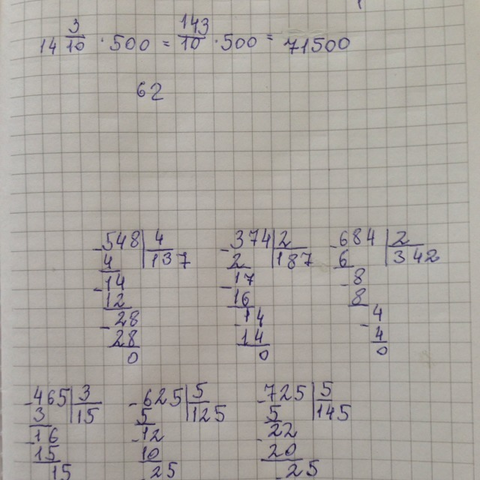 14 3/10 · 500 = 143/10 · 500 = 71500
62
-548 | 4
4 | 137
-14
12
-28
28
0
-374 | 2
2 | 187
-17
16
-14
14
0
-684 | 2
6 | 342
-8
8
-4
4
0
-465 | 3
3 | 15
-16
15
15
-625 | 5
5 | 125
-12
10
-25
-725 | 5
5 | 145
-22
20
-25